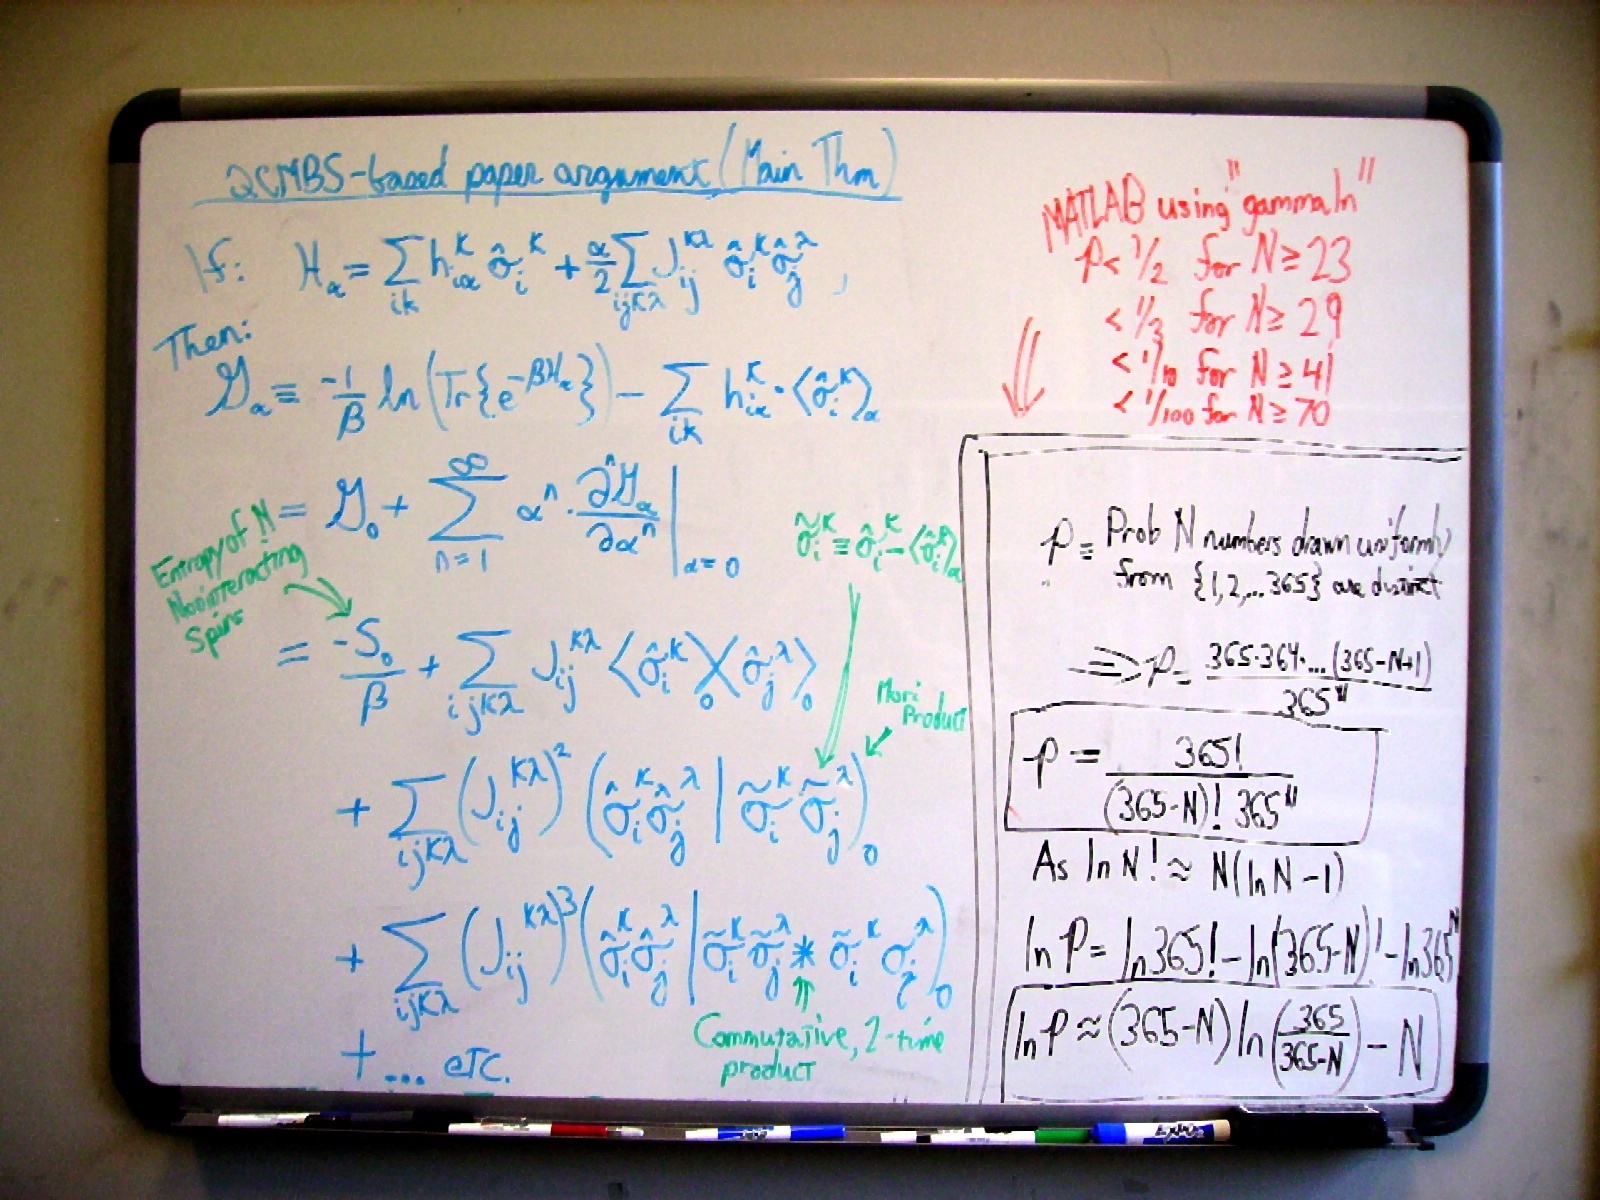 QCMBS-based paper argument (Main Thm)
If: H_α = Σ_{ik} h_{iα}^κ σ̂_i^κ + α/2 Σ_{ijκλ} J_{ij}^{κλ} σ̂_i^κ σ̂_j^λ ,
Then:
𝒢_α ≡ -1/β ln(Tr{e^{-βH_α}}) - Σ_{ik} h_{iα}^κ · ⟨σ̂_i^κ⟩_α
= 𝒢_0 + Σ_{n=1}^∞ α^n · ∂^n𝒢_α/∂α^n |_{α=0}
Entropy of N
Noninteracting
Spins
σ̃_i^κ ≡ σ̂_i^κ - ⟨σ̂_i^κ⟩_α
= -S_0/β + Σ_{ijκλ} J_{ij}^{κλ} ⟨σ̂_i^κ⟩_0 ⟨σ̂_j^λ⟩_0
Mori
Product
+ Σ_{ijκλ} (J_{ij}^{κλ})^2 (σ̂_i^κ σ̂_j^λ | σ̃_i^κ σ̃_j^λ)_0
+ Σ_{ijκλ} (J_{ij}^{κλ})^3 (σ̂_i^κ σ̂_j^λ | σ̃_i^κ σ̃_j^λ * σ̃_i^κ σ_j^λ)_0
Commutative, 2-time
product
+ ... etc.
MATLAB using "gammaln"
p < 1/2 for N ≥ 23
< 1/3 for N ≥ 29
< 1/10 for N ≥ 41
< 1/100 for N ≥ 70
p ≡ Prob N numbers drawn uniformly
from {1,2,...365} are distinct
⇒ p = 365·364·...(365-N+1)/365^N
p = 365!/((365-N)! 365^N)
As ln N! ≈ N(ln N - 1)
ln p = ln 365! - ln(365-N)! - ln 365^N
ln p ≈ (365-N) ln(365/(365-N)) - N
EXPO